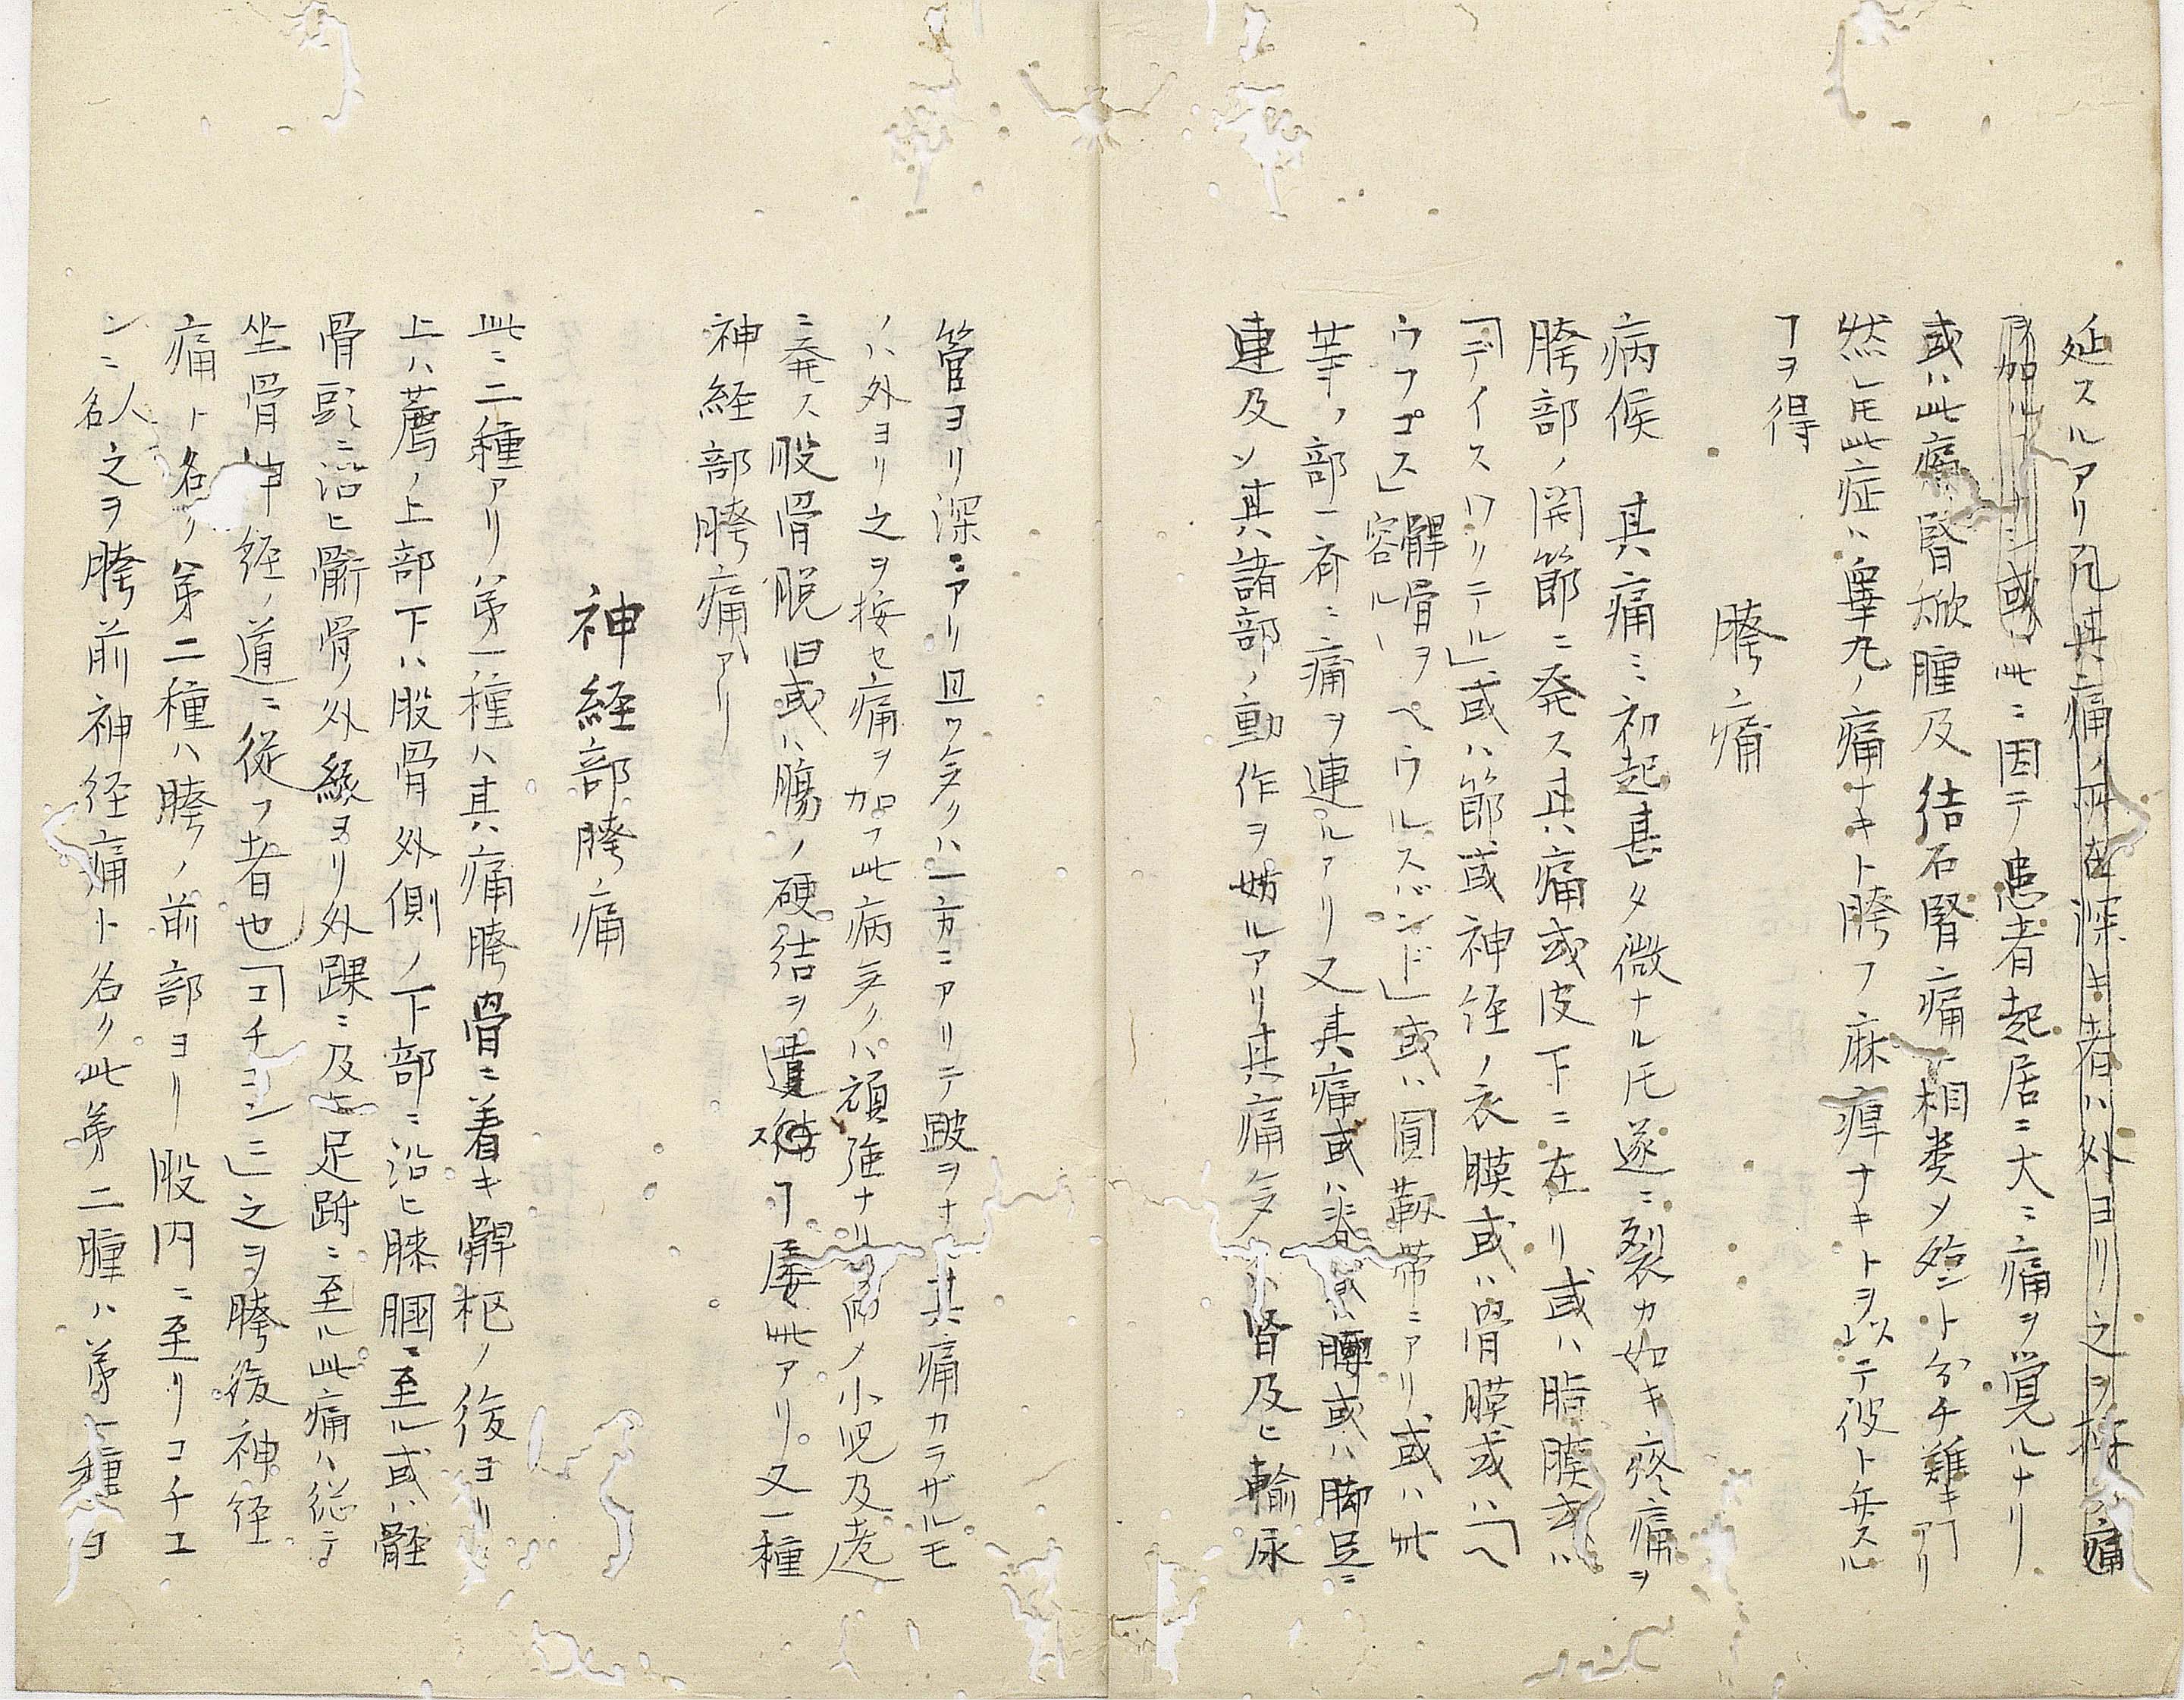 延スルアリ凡其痛ノ所在深キ者ハ外ヨリ之ヲ按痛
ヲ加ルナシ或ハ此ニ因テ患者起居ニ大ニ痛ヲ覚ルナリ
或ハ此痛腎焮腫及結石腎痛ト相类メ殆ント分チ難キヿアリ
然レ𪜈此症ハ睾丸ノ痛ナキト胯フ麻痺ナキトヲ以テ彼ト弁スル
ヿヲ得
胯痛
病候 其痛ミ初起甚タ微ナル𪜈遂ニ裂カ如キ疼痛ヲ
胯部ノ関節ニ発ス其痛或皮下ニ在リ或ハ脂膜或ハ
「デイスワリテル」或ハ節或神経ノ衣膜或ハ骨膜或ハ「ヘ
ウフゴス」容ル髀骨ヲ「ヘウルスバンド」或ハ圓靱帯ニアリ或ハ此
等ノ部一斉ニ痛ヲ連ルアリ又其痛或ハ脊或ハ腰或ハ脚足ニ
連及ソ其諸部ノ動作ヲ妨ルアリ其痛多クハ腎及ヒ輸尿
管ヨリ深ニアリ且ツ多クハ一方ニアリテ跛ヲナス其痛カラザルモ
ノハ外ヨリ之ヲ按セ痛ヲ加フ此病多クハ頑強ナリ而メ小児及老
ニ発ス股骨脱臼或ハ腸ノ硬結ヲ遺スヿ屡此アリ又一種
神経部胯痛アリ
神経部胯痛
此ニ二種アリ第一種ハ其痛胯骨ニ着キ髀枢ノ後ヨリ
上ハ薦ノ上部下ハ股骨外側ノ下部ニ沿ヒ膝膕ニ至ル或ハ脛
骨頭ニ沿ヒ䯒骨ノ外緣ヨリ外踝ニ及ヒ足跗ニ至ル此痛ハ総テ
坐骨神経ノ道ニ従フ者也「コチユンニ」之ヲ胯後神経
痛ト名ク第二種ハ胯ノ前部ヨリ股内ニ至リコチユ
ンニ人之ヲ胯前神経痛ト名ク此第二腫ハ第一種ヨ